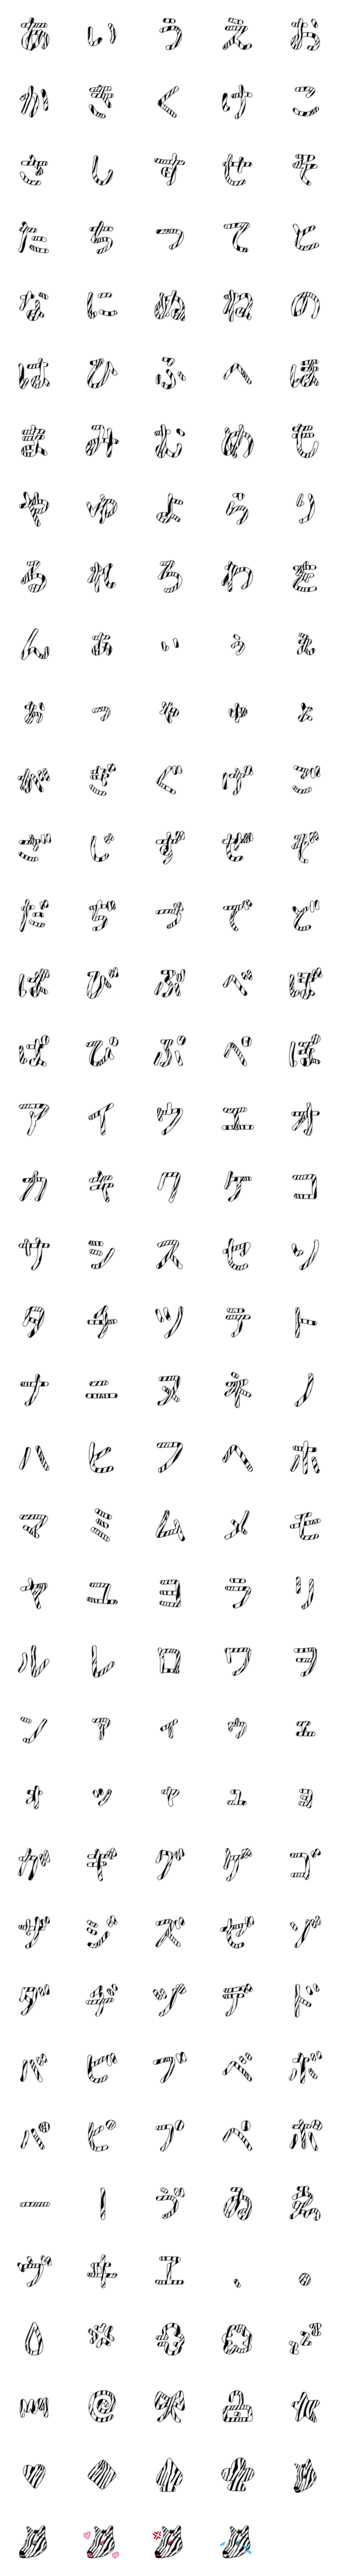 あ い う え お
か き く け こ
さ し す せ そ
た ち つ て と
な に ぬ ね の
は ひ ふ へ ほ
ま み む め も
や ゆ よ ら り
る れ ろ わ を
ん ぁ ぃ ぅ ぇ
ぉ っ ゃ ゅ ょ
が ぎ ぐ げ ご
ざ じ ず ぜ ぞ
だ ぢ づ で ど
ば び ぶ べ ぼ
ぱ ぴ ぷ ぺ ぽ
ア イ ウ エ オ
カ キ ク ケ コ
サ シ ス セ ソ
タ チ ツ テ ト
ナ ニ ヌ ネ ノ
ハ ヒ フ ヘ ホ
マ ミ ム メ モ
ヤ ユ ヨ ラ リ
ル レ ロ ワ ヲ
ン ァ ィ ゥ ェ
ォ ッ ャ ュ ョ
ガ ギ グ ゲ ゴ
ザ ジ ズ ゼ ゾ
ダ ヂ ヅ デ ド
バ ビ ブ ベ ボ
パ ピ プ ペ ポ
ー | ゔ ゐ ゑ
ヴ ヰ ヱ 、 。
zzz
@ 笑